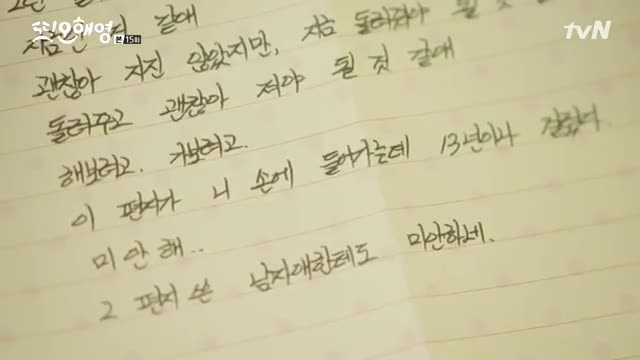 또오해영
본 15화
tvN
괜찮아 지진 않았지만, 지금 돌려줘야 될 것
돌려주고 괜찮아 져야 될 것 같애
해보려고. 가보려고.
이 편지가 니 손에 들어가는데 13년이나 걸렸어.
미안해..
그 편지 쓴 남자애한테도 미안하네.